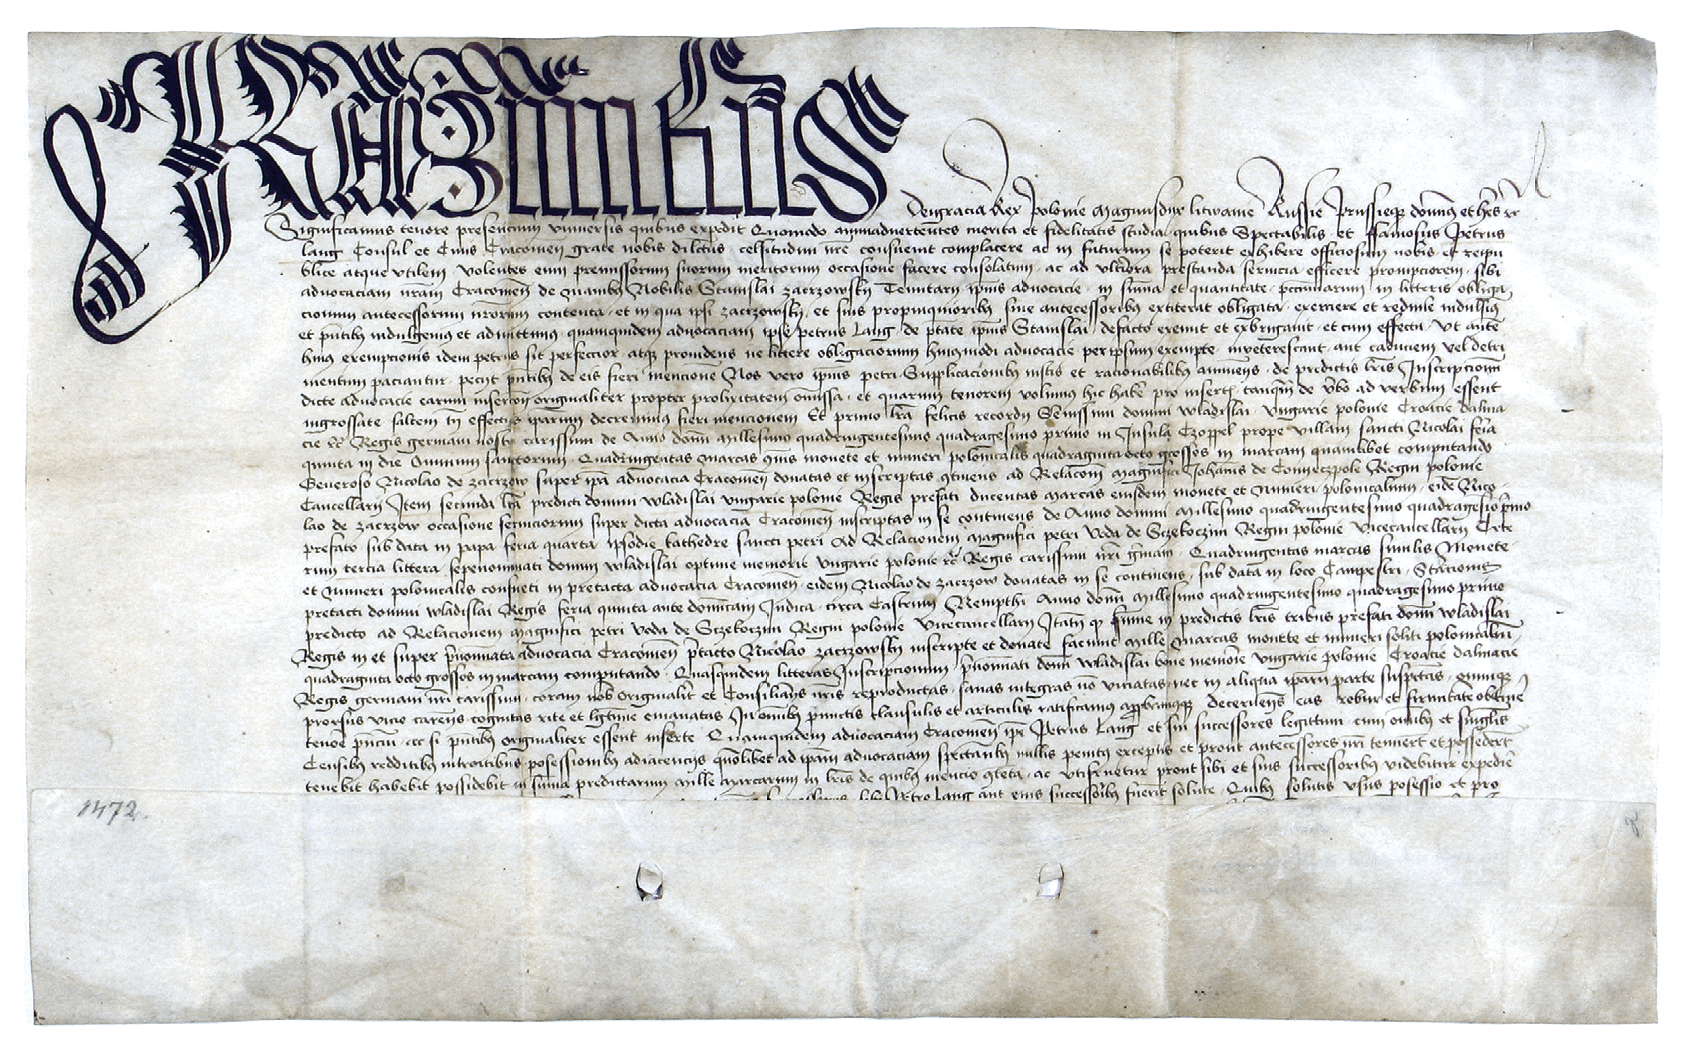 Kazimirus
Dei gracia Rex Polonie Magnus dux litwanie Russie prussieqz dominus et heres etc
Significamus tenore presencium vniuersis quibus expedit Quomodo animaduertentes merita et fidelitatis studia quibus Spectabilis et ffamosus Petrus
lang Consul et Ciuis Cracouien grate nobis dilctus celsitudini nre consueuit complacere ac in futurum se poterit exhibere officiosum nobis et reipu
blice atque vtilem volentes eum premissorum suorum meritorum occasione facere consolatum ac ad vlteriora prestanda seruicia efficere prompciorem sibi
aduocaciam nram Cracouien de manibus Nobilis Stanislai zaerzowskij Tenutarij ipius aduocacie in suma et quantitate peccuniarum in litteris obliga
cionum antecessorum nrorum contenta et in qua ipsi zaerzowskij et suis propinquioribus siue antecessoribus extiterat obligata exemere et redimere indulsimus
et pntibus indulgemus et admittimus quamquidem aduocaciam ipse petrus Lang de ptate ipius Stanislai defacto exemit et exbrigauit et cum effectu Vt autem
huius exempcionis idem petrus sit perfectior atqz prouidens ne littere obligacionum huiusmodi aduocacie per ipsum exempte inueterescant aut caducum vel detri
mentum paciantur pecijt pntibus de eis fieri mencionem Nos vero ipius petri Supplicacionibus iustis et racionabilibus annuens de predictis lris Inscripcionum
dicte aduocacie earum insercione originaliter propter prolixitatem omissa et quarum tenorem volumus hic habere pro inserto tanqm de verbo ad verbum essent
ingrossate saltem in effectu ipsarum decreuimus fieri mencionem Et primo lra felicis recordij Serenissimi domini wladislai vngarie polonie Croacie dalma
cie etc Regis germani nostri carissimi de Anno domini Millesimo quadringentesimo quadragesimo primo in Insula Czoppel prope villam sancti Nicolai feria
quinta in die Omnium sanctorum Quadringentas marcas cuius monete et numeri polonicalis quadraginta octo grossos in marcam quamlibet computando
Generoso Nicolao de zaerzow super ipa aduocacia Cracouien donatas et inscriptas continens ad Relacom magnifici Johanis de Conieczpole Regni polonie
Cancellarij Item secunda lra predicti domini wladislai vngarie polonie Regis prefati ducentas Marcas eiusdem monete et Numeri polonicalium eidem Nico
lao de zaerzow occasione seruiciorum super dicta aduocacia Cracouien inscriptas in se continens de Anno domini Millesimo quadringentesimo quadragesimo primo
prefato sub data in papa feria quarta ipsodie kathedre sancti petri Ad Relacionem magnifici petri Voda de Sczekoczini Regni polonie vicecancellarij Cete
rum tercia littera sepenominati domini wladislai optime memorie vngarie polonie etc Regis carissimi nri germani Quadringentas marcas similis Monete
et Numeri polonicalis consueti in pretacta aduocacia Cracouien eidem Nicolao de zaerzow donatas in se continens sub data in loco Campestri Stacionis
pretacti domini wladislai Regis feria quinta ante dominicam Judica circa Castrum Nempthi Anno domini Millesimo quadringentesimo quadragesimo primo
predicto ad Relacionem magnifici petri Voda de Sczekoczini Regni polonie Vicecancellarij Itaqz summe in predictis lris tribus prefati domini wladislai
Regis in et super prenominata aduocacia Cracouien pretacto Nicolao zaerzowskij inscripte et donate faciunt Mille Marcas monete et numeri soliti polonicalium
quadraginta octo grossos in marcam computando Quasquidem litteras Inscripcionum prenominati domini wladislai bone memorie vngarie polonie Croacie dalmacie
Regis germani nri carissimi coram nobis originaliter et Consiliarijs nris reproductas sanas integras non viciatas nec in aliqua ipsarum parte suspectas omniqz
prorsus vicio carens cognitas rite et legitime emanatas In omnibus punctis clausulis et articulis ratificamus approbamusqz decernentes eas robur et firmitate obtinere
tenore pncium ac si pntibus originaliter essent inserte Quamquidem aduocaciam Cracouien ipse Petrus Lang et sui successores legittimi cum omnibus et singulis
Censibus redditibus introitibus possessionibus adiacencijs quomlibet ad ipsam aduocaciam spectantibus nullis penitus exceptis et prout antecessores nri tenuert et possedert
tenebit habebit possidebit in suma predictarum Mille Marcarum in lris de quibus mencio completa ac vtifruetur prout sibi et suis successoribus videbitur expedire
Petro Lang aut eius successoribus fuerit solute Quibus solutis vsus possessio et pro
1472.